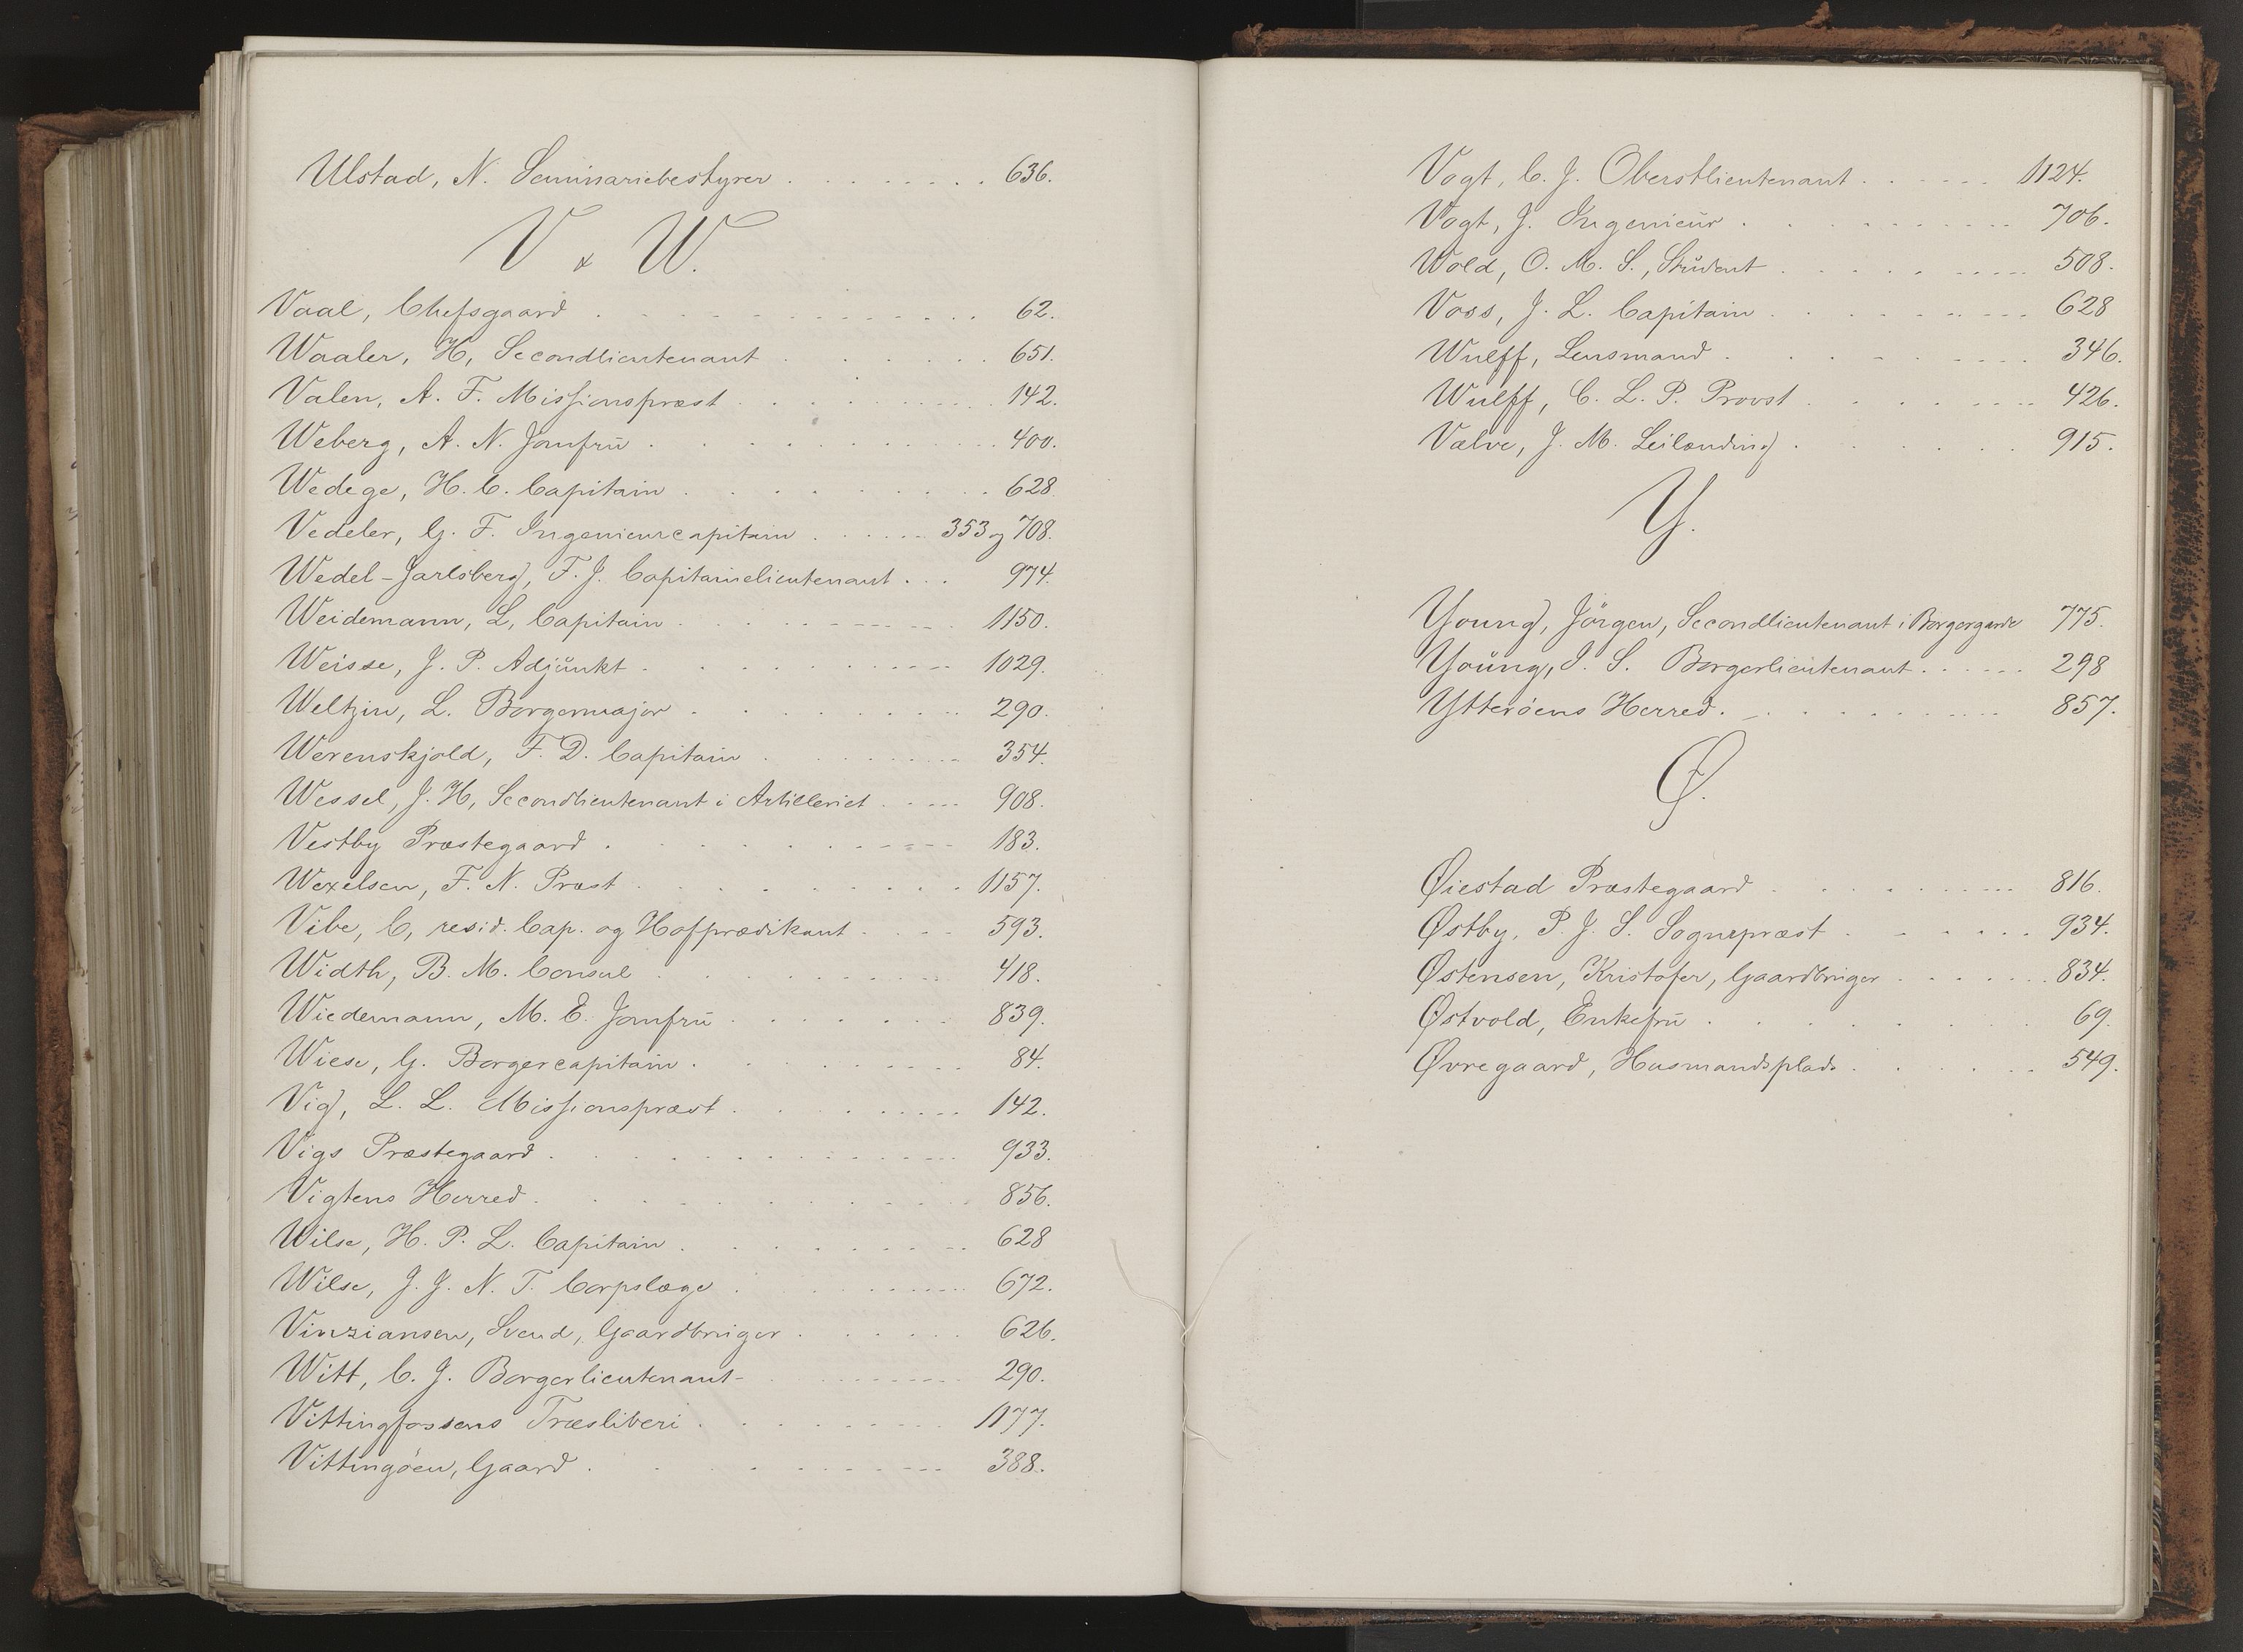 Ulstad, N. Seminariebestyrer . . . . . . . . 636.
V & W.
Vaal, Chefsgaard . . . . . . . . . . 62.
Waaler, H, Secondlieutenant . . . . . . 651.
Valen, A. F. Missionspræst . . . . . . . 142.
Weberg, A. N. Jomfrū . . . . . . . . 400.
Wedege, H. C. Capitain . . . . . . . . 628.
Vedeler, G. F. Ingenieurcapitain . . . . . 353 og 708.
Wedel-Jarlsberg, F. J. Capitainelieutenant . . . 974.
Weidemann, L, Capitain . . . . . . . . 1150.
Weisse, J. P. Adjūnkt . . . . . . . . 1029.
Weltzin, L. Borgermajor . . . . . . . . 290.
Werenskjold, F. D. Capitain . . . . . . . 354.
Wessel, J. H, Secondlieutenant i Artilleriet . . . . 908.
Vestby Præstegaard . . . . . . . . . 183.
Wexelsen, F. N. Præst . . . . . . . . 1157.
Vibe, C, resid. Cap. og Hofprædikant . . . . 593.
Width, B. M. Consul . . . . . . . . 418.
Wiedemann, M. E. Jomfrū . . . . . . . 839.
Wiese, G. Borgercapitain . . . . . . . . 84.
Vig, L. L. Missionspræst . . . . . . . . 142.
Vigs Præstegaard . . . . . . . . . . 933.
Vigtens Herred . . . . . . . . . . 856.
Wilse, H. P. L. Capitain . . . . . . . . 628
Wilse, J. J. N. T. Corpslæge . . . . . . . 672.
Vinziansen, Svend, Gaardbruger . . . . . . 626.
Witt, C. J. Borgerlieutenant . . . . . . . 290.
Vittingfossens Træsliberi . . . . . . . . 1177.
Vittingöen, Gaard . . . . . . . . . 388.
Vogt, C. J. Oberstlieutenant . . . . . . 1124.
Vogt, J. Ingenieūr . . . . . . . . . 706.
Wold, O. M. S., Stūdent . . . . . . . . 508.
Voss, J. L. Capitain . . . . . . . . 628
Wulff, Lensmand . . . . . . . . 346.
Wulff, C. L. P. Provst . . . . . . . . 426.
Vælve, J. M. Leilænding . . . . . . . 915.
Y.
Young, Jörgen, Secondlieutenant i Borgergarde 775.
Yoūng, J. S. Borgerlieutenant . . . . . . 298
Ytteröens Herred . . . . . . . . . 857.
Ø.
Øiestad Præstegaard . . . . . . . . 816.
Østby, P. J. S. Sognepræst . . . . . . . 934.
Østensen, Kristofer, Gaardbruger . . . . . . 834.
Østvold, Enkefrū . . . . . . . . . 69.
Øvregaard, Husmandsplads . . . . . . . 549.